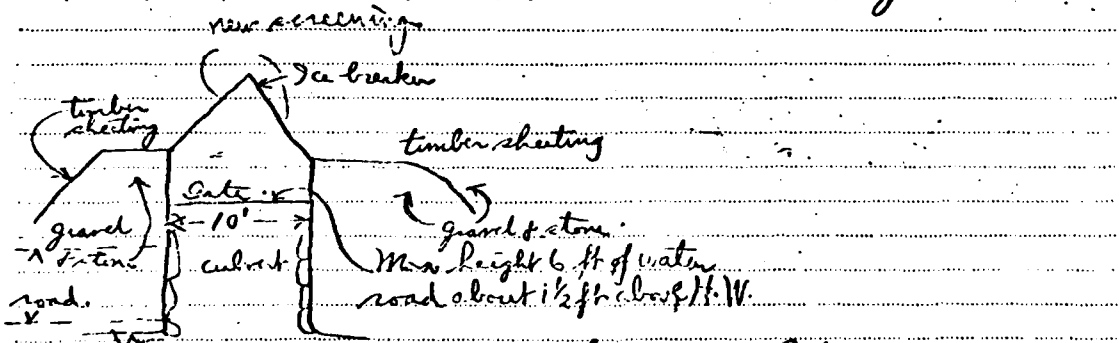 new screening
Ice breaker
timber
sheeting
timber sheeting
Gate
10'
gravel
& stone
gravel & stone.
culvert
Min height 6 ft of water
road.
road about 1½ ft above H.W.